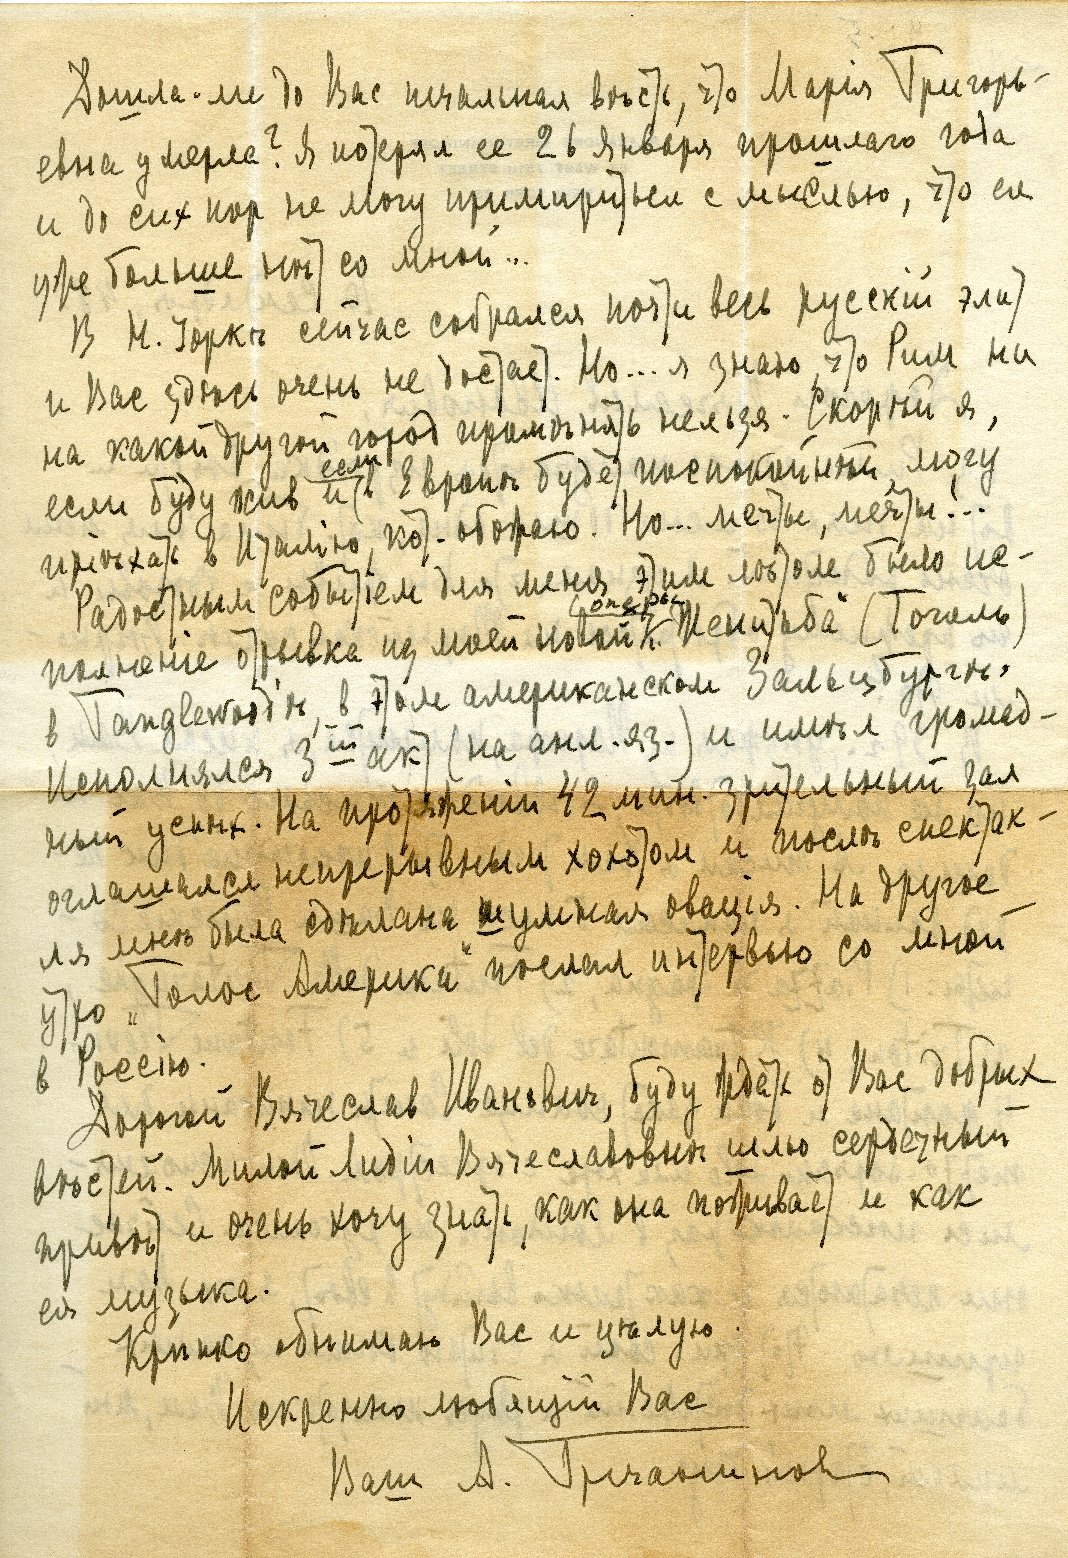 Дошла-ли до Вас печальная вѣсть, что Марія Григорь-
евна умерла? Я потерял ее 26 января прошлаго года
и до сих пор не могу примириться с мыслью, что ея
уже больше нѣт со мной...
В Н. Іоркѣ сейчас собрался почти весь русскій элит
и Вас здѣсь очень не достает. Но... я знаю, что Рим ни
на какой другой город промѣнять нельзя. Скорѣй я,
если буду жив и если в Европѣ будет поспокойнѣй, могу
пріѣхать в Италію, кот. обожаю. Но... мечты, мечты!..
Радостным событіем для меня этим лѣтом было ис-
полненіе отрывка из моей новой оперы „Женитьба" (Гоголь)
в Tanglewood'ѣ, в этом американском Зальцбургѣ.
Исполнялся 3ій акт (на анл. яз.) и имѣл громад-
ный успѣх. На протяженіи 42 мин. зрительный зал
оглашался непрерывным хохотом и послѣ спектак-
ля мнѣ была сдѣлана шумная овація. На другое
утро „Голос Америки" послал интервью со мной
в Россію.
Дорогой Вячеслав Иванович, буду ждать от Вас добрых
вѣстей. Милой Лидіи Вячеславовнѣ шлю сердечный
привѣт и очень хочу знать, как она поживает и как
ея музыка.
Крѣпко обнимаю Вас и цѣлую.
Искренно любящій Вас
Ваш А. Гречанинов